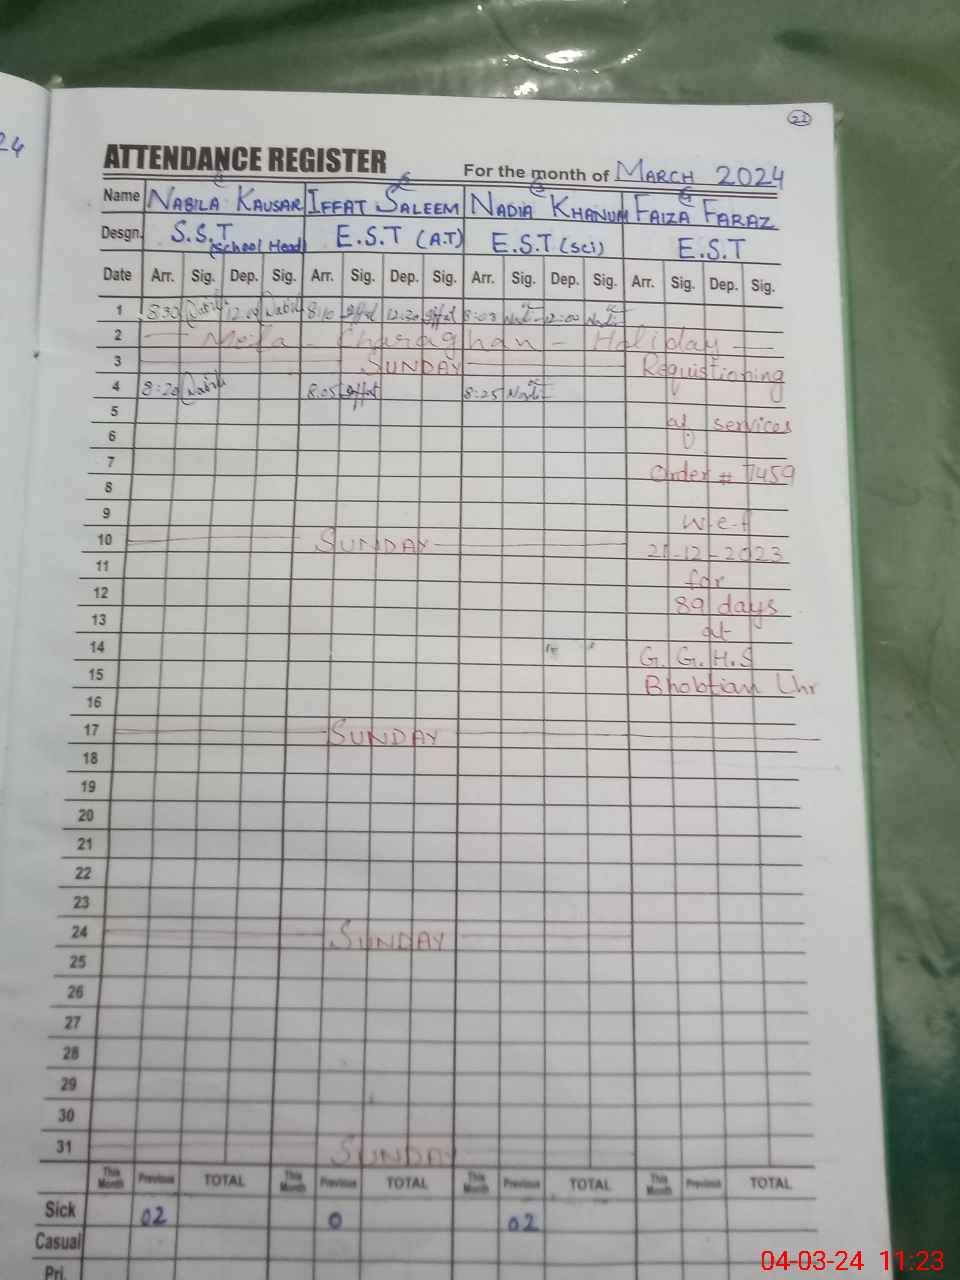 24
22
ATTENDANCE REGISTER For the month of MARCH 2024
Name NABILA KAUSAR IFFAT SALEEM NADIA KHANUM FAIZA FARAZ
Desgn. S.S.T (School Head) E.S.T (A.T) E.S.T (Sci) E.S.T
Date Arr. Sig. Dep. Sig. Arr. Sig. Dep. Sig. Arr. Sig. Dep. Sig. Arr. Sig. Dep. Sig.
1 8:30 Nabila 12:00 Nabila 8:10 Iffat 12:30 Iffat 8:08 12:00
2 Meila - Charaghan - Holiday
3 SUNDAY Requistioning
4 8:20 Nabila 8:05 Iffat 8:25
5 of services
6
7 Order # 7459
8
9 w.e.f
10 SUNDAY 21-12-2023
11 for
12 89 days
13 at
14 G.G.H.S
15 Bhobtian Lhr
16
17 SUNDAY
18
19
20
21
22
23
24 SUNDAY
25
26
27
28
29
30
31 SUNDAY
This Month Previous TOTAL This Month Previous TOTAL This Month Previous TOTAL This Month Previous TOTAL
Sick 02 0 02
Casual
Pri.
04-03-24 11:23